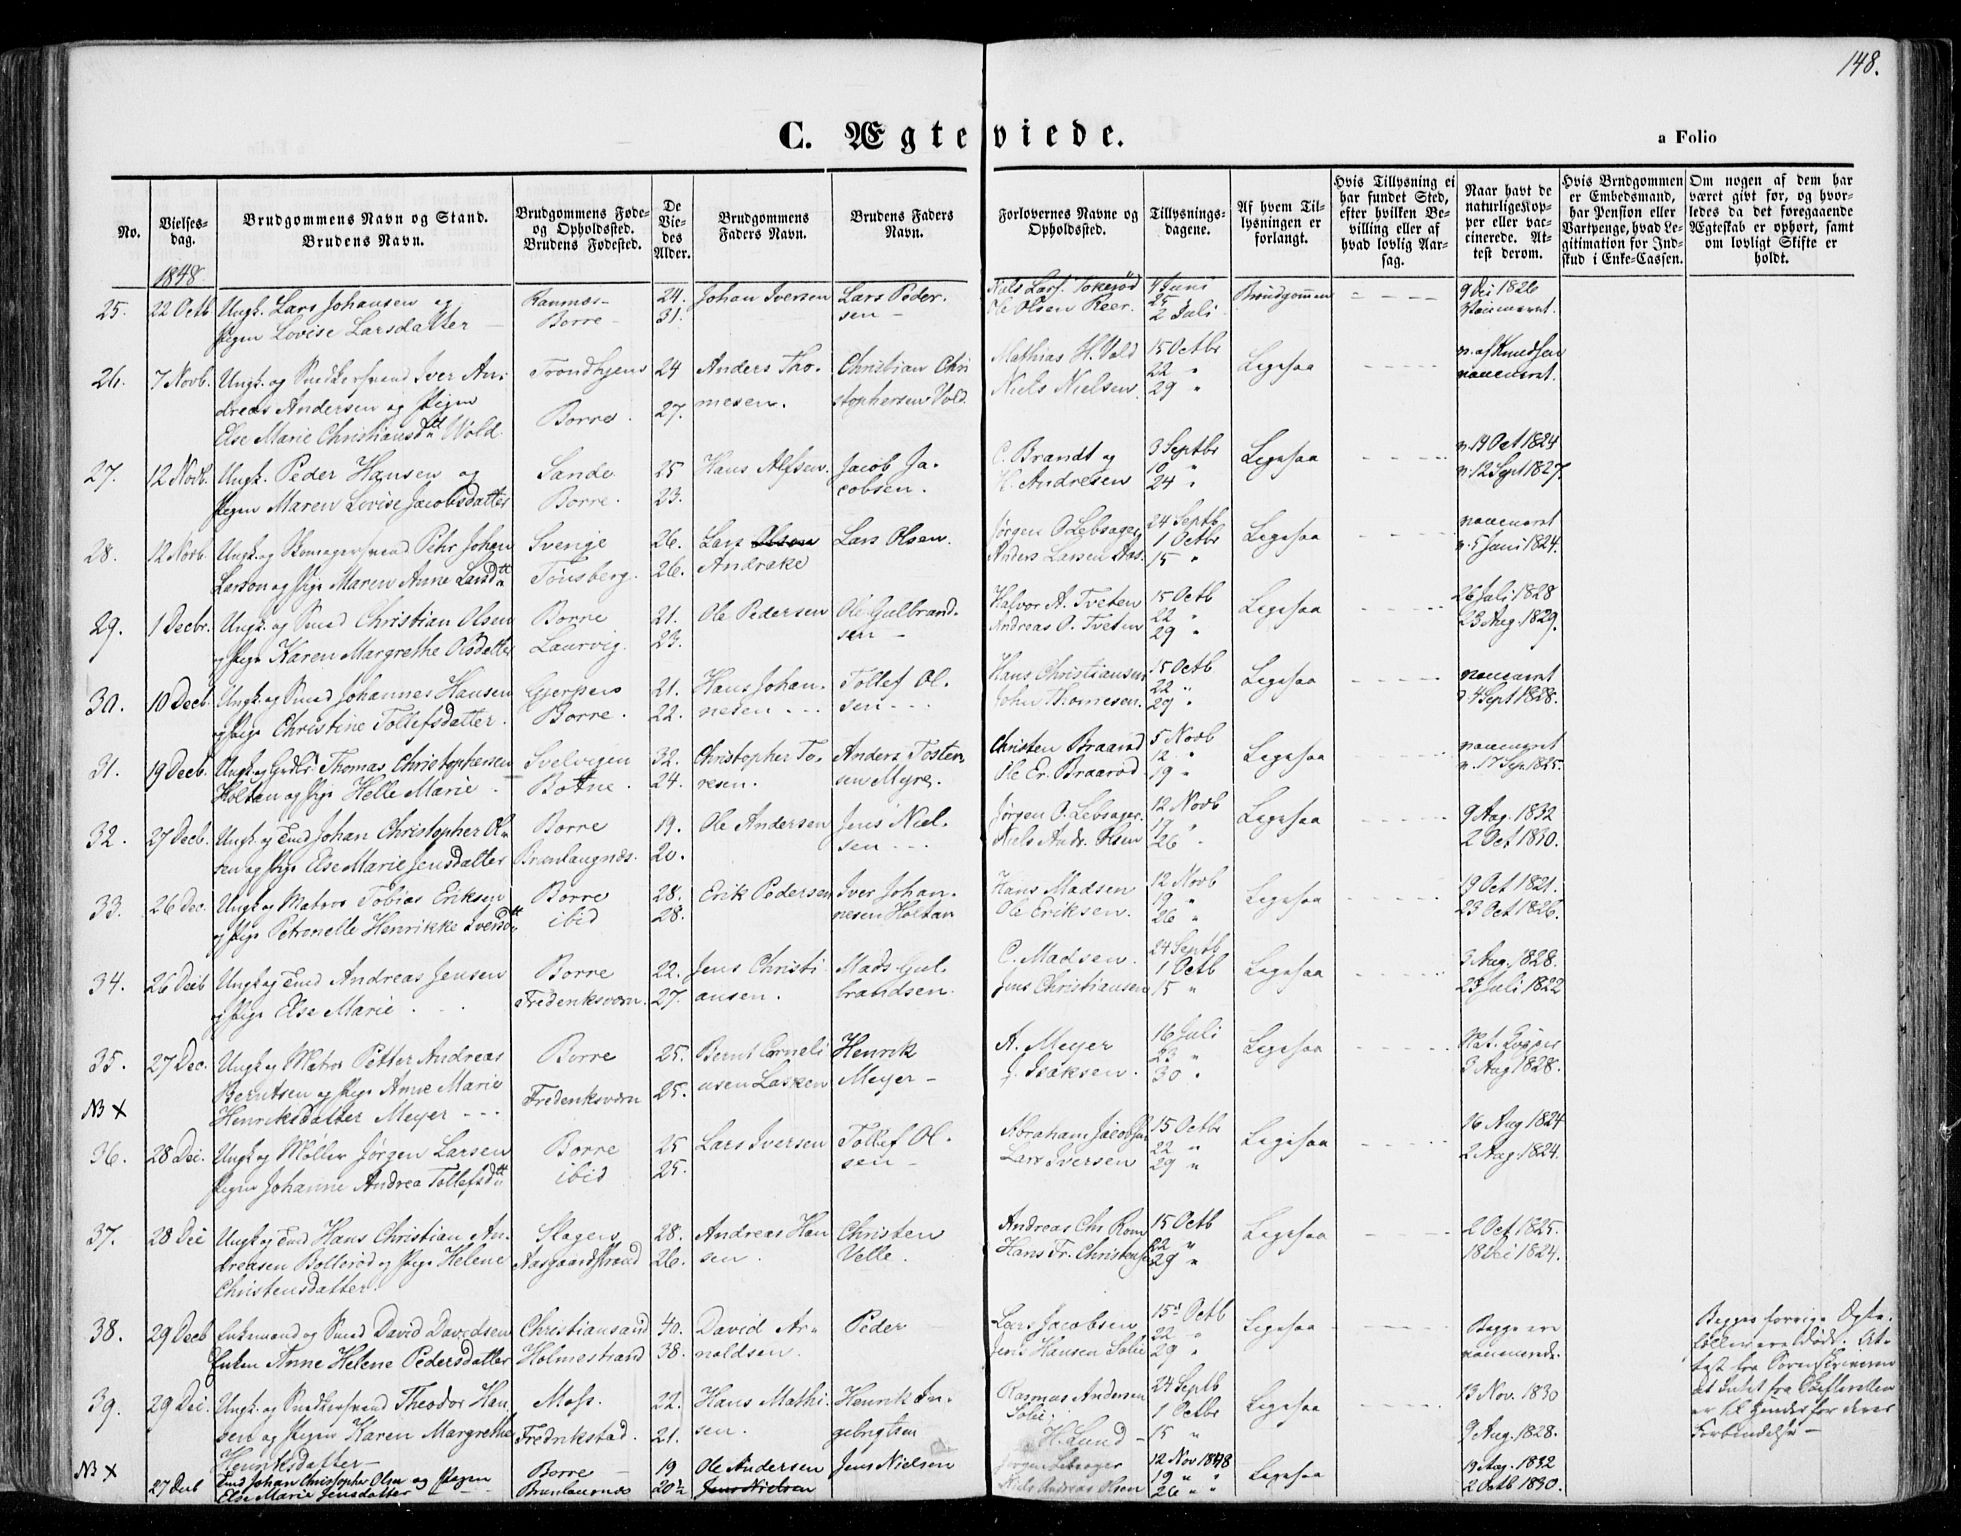 148.
C. Ægteviede.
a Folio
No.
Vielses-
dag.
Brudgommens Navn og Stand.
Brudens Navn.
Brudgommens Føde-
og Opholdssted.
Brudens Fødested.
De
Vie-
des
Alder.
Brudgommens
Faders Navn.
Brudens Faders
Navn.
Forlovernes Navne og
Opholdssted.
Tillysnings-
dagene.
Af hvem Til-
lysningen er
forlangt.
Hvis Tillysning ei
har fundet Sted,
efter hvilken Be-
villing eller af
hvad lovlig Aar-
sag.
Naar havt de
naturlige Kop-
per eller vac-
cinerede. At-
test derom.
Hvis Brudgommen
er Embedsmand,
har Pension eller
Vartpenge, hvad Le-
gitimation for Ind-
skud i Enke-Cassen.
Om nogen af dem har
været givt før, og hvor-
ledes da det foregaaende
Ægteskab er ophørt, samt
om lovligt Skifte er
holdt.
1848
25. 22 Octb Ungk. Lars Johansen og 24. Johan Iversen Lars Peder- 4 Juni Brudgommen 9 Dei 1826
Pigen Lovise Larsdatter Borre 31. sen Ole Olsen 25 2 Juli
26. 7 Novb. Ungk. og Snedkersvend Iver An- Trondhjem 24 Anders Tho- Christian Chri Mathias H. Vold 15 Octbr Ligesaa
dreas Andersen og Pigen Borre. 27. mesen. stophersen Vold Niels Nielsen 22 " 29 "
Else Marie Christiansdtt Wold
27. 12 Novb. Ungk. Peder Hansen og Sande 25 Hans Alfsen. Jacob Ja- C. Brandt og 3 Septbr Ligesaa v. 19 Oct 1824
Pigen Maren Lovise Jacobsdatter Borre. 23. cobsen. H. Andresen 10 " 24 " v. 12 Sept 1827.
28. 12 Novb. Ungk. og Skomagersvend Pehr Johan Sverige 26. Lars Olsen Lars Olsen. Jørgen O. Lebsager 24 Septb Ligesaa
Larson og Pige Maren Anne Larsdtt Tønsberg. 26. Andrake Anders Larsen 1 Octbr 15 " v. 5 Juni 1824.
29. 1 Decbr. Ungk. og Smed Christian Olsen Borre 21. Ole Pedersen Ole Gulbrand- Halvor A. Tveten 15 Octb Ligesaa 26 Juli 1828
og Pige Karen Margrethe Olsdatter Laurvig. 23. sen Andreas O. Tveten 22 " 29 " 23 Aug. 1829.
30. 10 Decb. Ungk. og Smed Johannes Hansen Gjerpens 21. Hans Johan- Tollef Ol- Hans Christiansen 15 Octb Ligesaa
og Pige Christine Tollefsdatter. Borre. 22. nesen sen John Thomesen. 22 " 29 " 4 Sept 1828.
31. 19 Decb. Ungk. og Thomas Christophersen Svelvigen 32. Christopher To- Anders Tosten Christen Braarød 5 Novb Ligesaa
Holtan og Pige Helle Marie. Botne. 24. resen. sen Myre. Ole Er. Braarød 12 " 19 " v. 17 Sep 1825.
32. 27 Decb. Ungk. og Johan Christopher Ol- Borre 19. Ole Andersen Jens Niel- Jørgen O. Lebsager. 12 Novb Ligesaa 9 Aug. 1832
sen og Pige Else Marie Jensdatter Brunlaugnæs. 20. sen Niels Andr. Olsen 26 " 2 Oct 1830.
33. 26 Dec. Ungk. og Matros Tobias Eriksen Borre 28. Erik Pedersen Iver Johan- Hans Madsen 12 Novb Ligesaa 19 Oct 1821.
og Pige Petronelle Henrikke Iversdtt ibid 28. nesen Holtan Ole Eriksen. 19 " 26 " 23 Oct 1826.
34. 26 Decb Ungk. og Andreas Jensen Borre 22. Jens Christi- Mads Gul- C. Madsen. 24 Septb Ligesaa 3 Aug. 1828.
og Pige Else Marie. Frederiksværn. 27. ansen. brandsen. Jens Christiansen 1 Octb 15 " 23 Juli 1822
35. 27 Dec. Ungk. og Matros Petter Andreas Borre 25. Bernt Corneli Henrik A. Meyer 16 Juli Ligesaa Nat. Kopper
NB X Berntsen og Pige Anne Marie Frederiksværn 25. usen Lasken Meyer J. Isaksen. 23 " 30 " 3 Aug 1828.
Henriksdatter Meyer
36. 28 Dec. Ungk. og Møller Jørgen Larsen Borre 25 Lars Iversen Tollef Ol- Abraham Jacobsen 15 Octbr Ligesaa 16 Aug 1824
Pigen Johanne Andrea Tollefsdtt ibid 25. sen Lars Iversen 22 " 29 " 2 Aug. 1824.
37. 28 Dec Ungk. og Hans Christian An- Slagen 28. Andreas Han Christen Andreas Chr. Rom 15 Octb Ligesaa 2 Oct 1825.
dreasen Bollerød og Pige Helene Aasgaardstrand 26. sen. Velle. Hans Fr. Christensen 22 " 29 " 18 Dei 1824.
Christensdatter.
38. 29 Decb Enkemand og Smed David Davidsen Christiansand 40. David Ar- Peder Lars Jacobsen 15 Octb Ligesaa Begge ere Begges forrige Ægte-
Enken Anne Helene Pedersdatter Holmestrand 38. noldsen. Jens Hansen Solie 22 " 29 " vaccinerede. fæller ere døde. At-
test fra Sorenskriveren
at Intet fra Skifteretten
er til Hinder for deres
Forbindelse
39. 29 Dec. Ungk. og Snedkersvend Theodor Han Moss. 22. Hans Mathi- Henrik In- Rasmus Andersen 24 Septb Ligesaa 13 Nov. 1830
sen og Pigen Karen Margrethe Fredrikstad. 21. sen. gebrigtsen Solie. H. Lund 1 Octbr 15 " 9 Aug. 1828.
Henriksdatter
NB X 27 Decb Johan Christopher Olsen og Pigen Borre 19 Ole Andersen Jens Nielsen Jørgen Lebsager 12 Nov 1848 Ligesaa 19 Aug. 1832
Else Marie Jensdatter Brunlaugnæs 20½ Jens Nielsen Niels Andreas Olsen 19 " " 26 " " 2 Octb 1830.